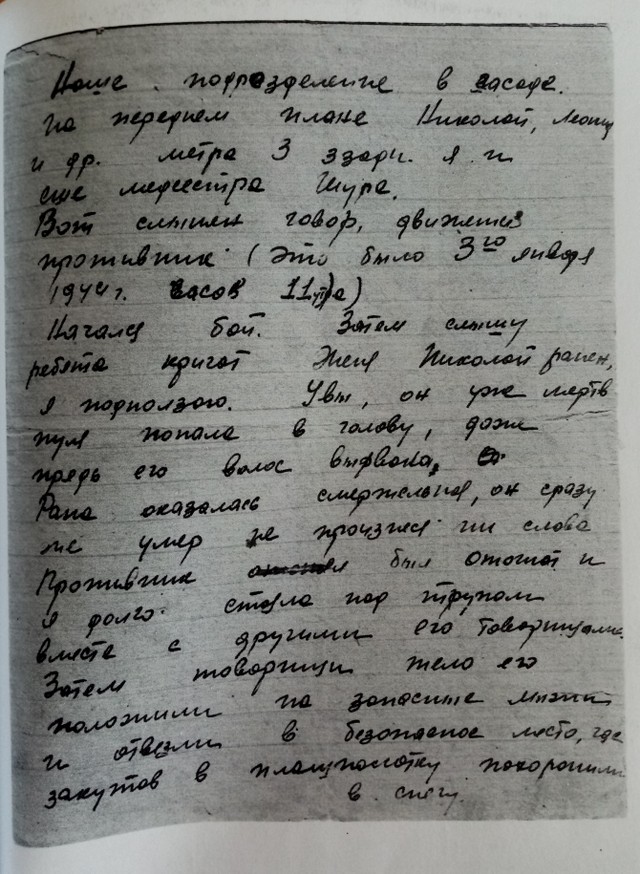 Наше подразделение в засаде.
На переднем плане Николай, Леонид
и др. метра 3 сзади я и
еще медсестра Шура.
Вот слышен говор, движется
противник (это было 3го января
1944 г. часов 11 утра)
Начался бой. Затем слышу
ребята кричат Женя Николай ранен,
я подползаю. Увы, он уже мертв
пуля попала в голову, даже
прядь его волос вырвала,
Рана оказалась смертельная, он сразу
же умер не произнеся ни слова
Противник был отогнат и
я долго стояла над трупом
вместе с другими его товарищами.
Затем товарищи тело его
положили на запасные лыжи
и отвезли в безопасное место, где
закутав в плащпалатку похоронили
в снегу